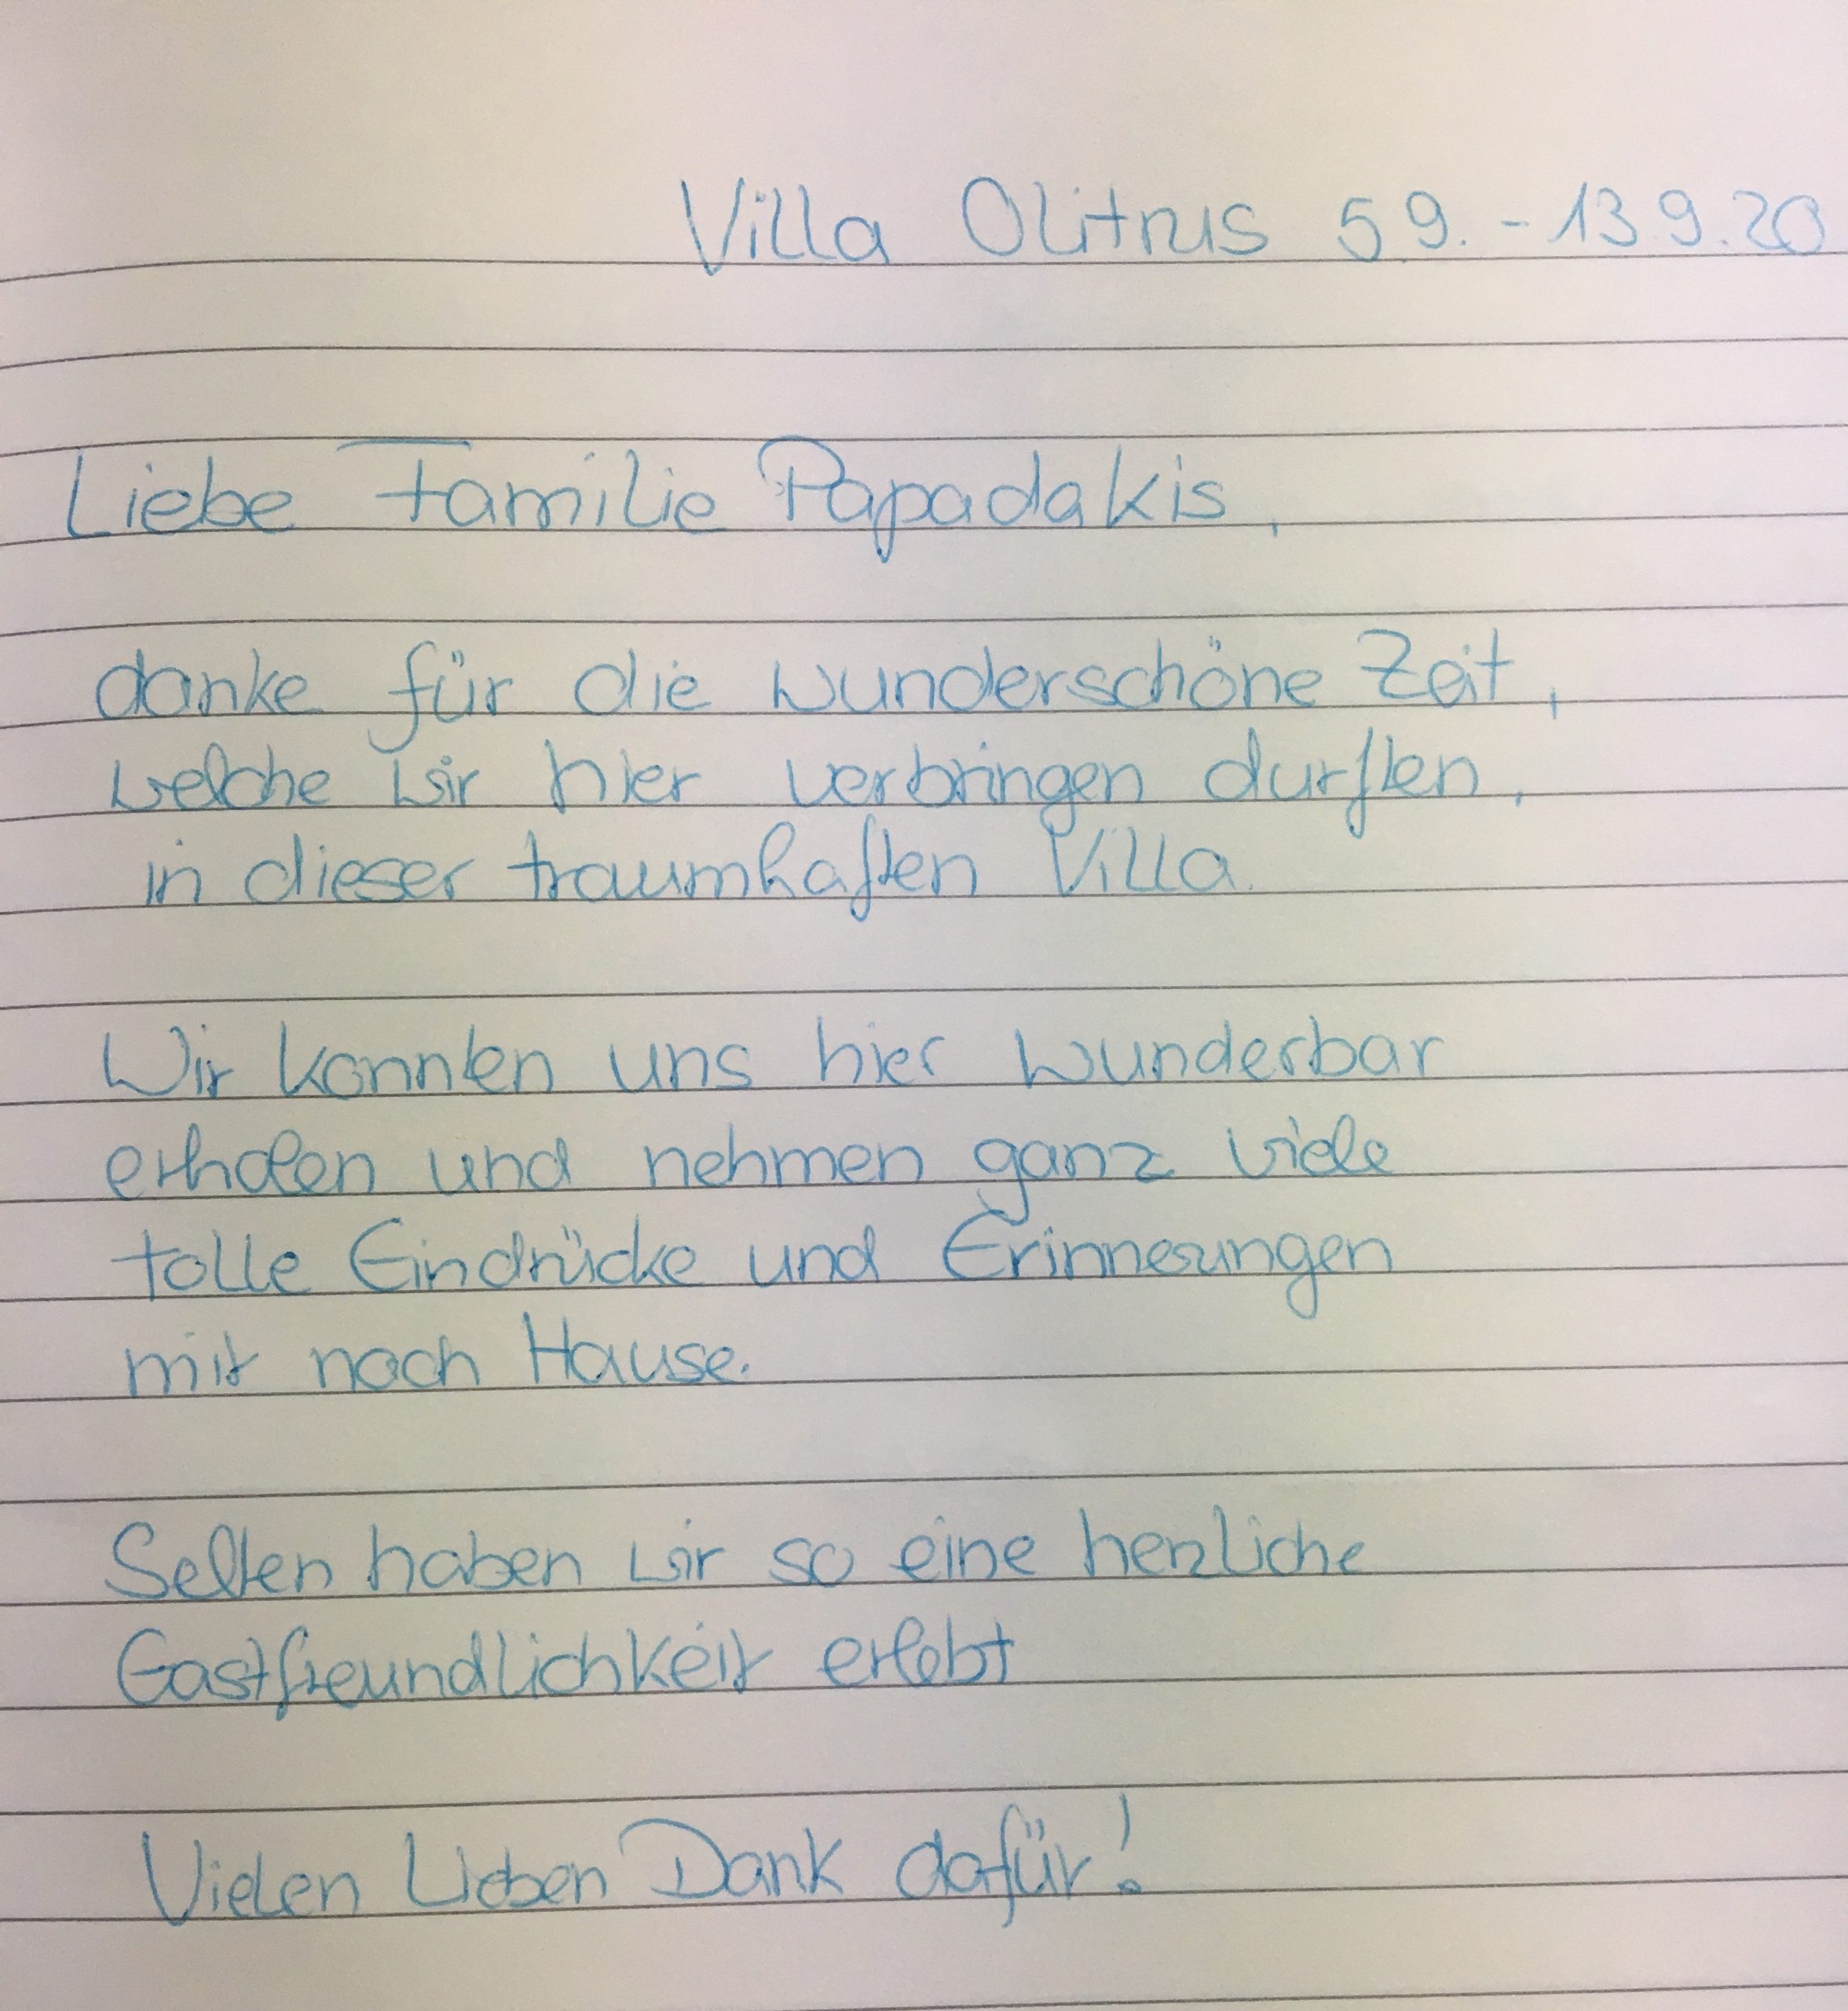 Villa Olitrus 5.9. - 13.9.20
Liebe Familie Papadakis,
danke für die wunderschöne Zeit,
welche wir hier verbringen durften,
in dieser traumhaften Villa.
Wir konnten uns hier wunderbar
erholen und nehmen ganz viele
tolle Eindrücke und Erinnerungen
mit nach Hause.
Selten haben wir so eine herzliche
Gastfreundlichkeit erlebt
Vielen Lieben Dank dafür!